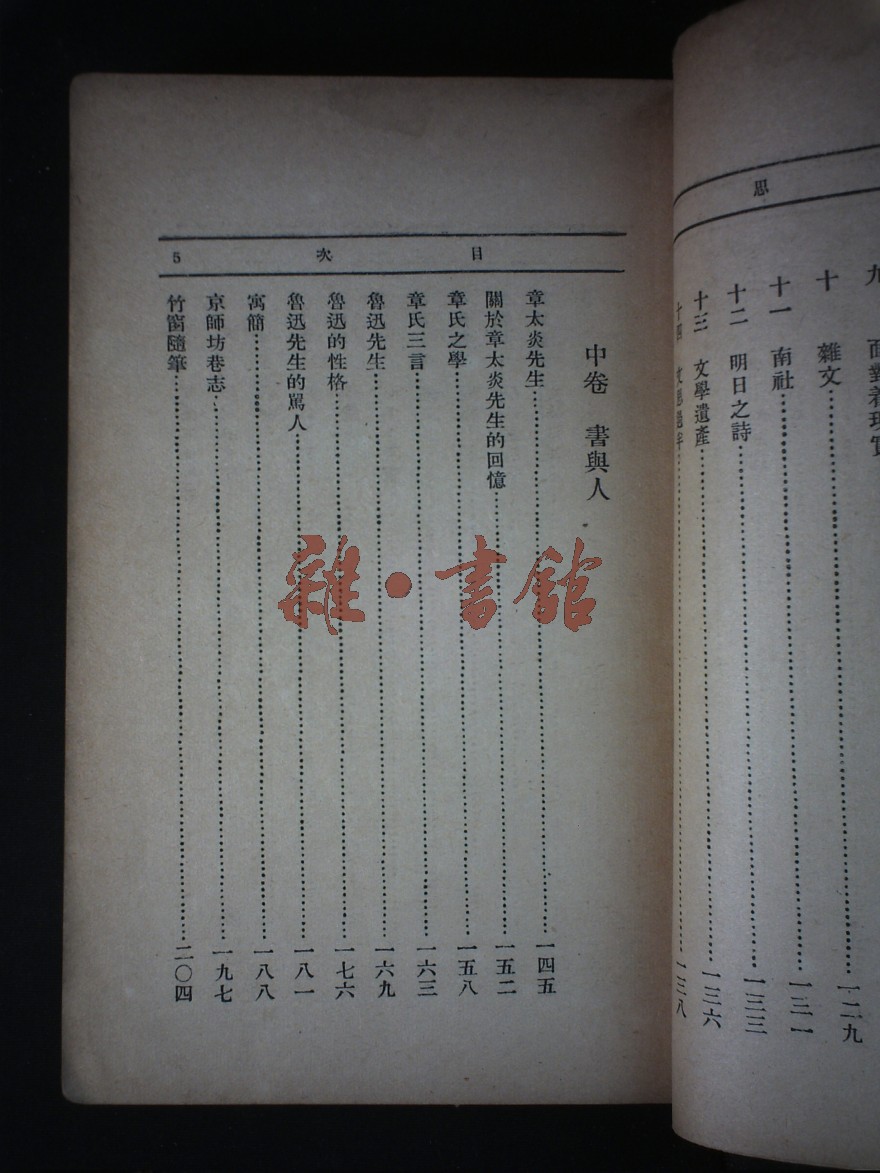 思
九 面對着現實
十 雜文……一二九
十一 南社……一三一
十二 明日之詩……一三三
十三 文學遺產……一三六
十四 ……一三八
目次 5
中卷 書與人
章太炎先生……一四五
關於章太炎先生的回憶……一五二
章氏之學……一五八
章氏三言……一六三
魯迅先生……一六九
魯迅的性格……一七六
魯迅先生的駡人……一八一
寓簡……一八八
京師坊巷志……一九七
竹窗隨筆……二〇四
雜·書館